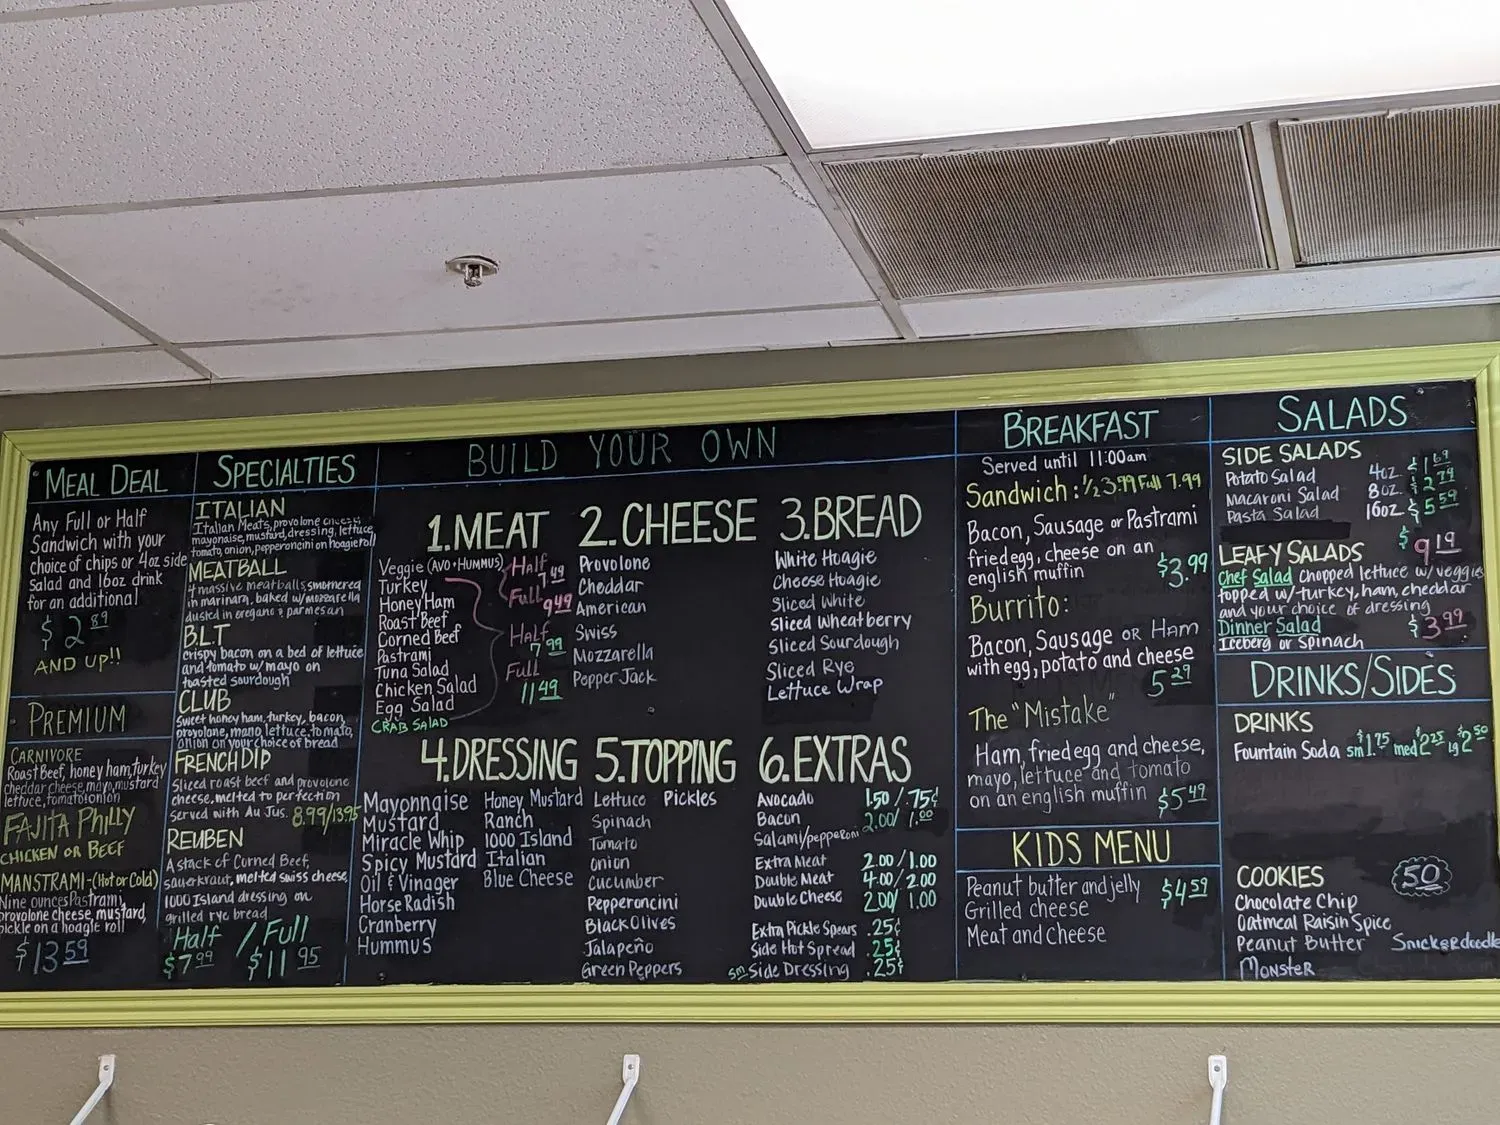 MEAL DEAL
Any Full or Half
Sandwich with your
choice of chips or 4oz side
Salad and 16oz drink
for an additional
$2.89
AND UP!!
PREMIUM
CARNIVORE
Roast Beef, honey ham, turkey
cheddar cheese, mayo, mustard
lettuce, tomato, onion
FAJITA PHILLY
CHICKEN OR BEEF
MANSTRAMI-(Hot or Cold)
Nine ounces Pastrami,
provolone cheese, mustard,
pickle on a hoagie roll
$13.59
SPECIALTIES
ITALIAN
Italian Meats, provolone cheese,
mayonaise, mustard, dressing, lettuce
tomato, onion, pepperoncini on hoagie roll
MEATBALL
4 massive meatballs, smothered
in marinara, baked w/mozzarella
dusted in oregano & parmesan
B.L.T
crispy bacon on a bed of lettuce
and tomato w/ mayo on
toasted sourdough
CLUB
Sweet honey ham, turkey, bacon,
provolone, mayo, lettuce, tomato,
onion on your choice of bread
FRENCH DIP
Sliced roast beef and provolone
cheese, melted to perfection
Served with Au Jus. 8.99/13.95
REUBEN
A stack of Corned Beef,
sauerkraut, melted swiss cheese,
1000 Island dressing on
grilled rye bread
Half / Full
$7.99 $11.95
BUILD YOUR OWN
1.MEAT
Veggie (AVO+HUMMUS) Half 7.49
Turkey Full 9.49
Honey Ham
Roast Beef
Corned Beef Half 7.99
Pastrami
Tuna Salad Full 11.49
Chicken Salad
Egg Salad
CRAB SALAD
2.CHEESE
Provolone
Cheddar
American
Swiss
Mozzarella
Pepper Jack
3.BREAD
White Hoagie
Cheese Hoagie
Sliced White
Sliced Wheatberry
Sliced Sourdough
Sliced Rye
Lettuce Wrap
4.DRESSING
Mayonnaise
Mustard
Miracle Whip
Spicy Mustard
Oil & Vinager
Horse Radish
Cranberry
Hummus
Honey Mustard
Ranch
1000 Island
Italian
Blue Cheese
5.TOPPING
Lettuce Pickles
Spinach
Tomato
Onion
Cucumber
Pepperoncini
Black Olives
Jalapeño
Green Peppers
6.EXTRAS
Avocado 1.50/.75¢
Bacon 2.00/1.00
Salami/pepperoni
Extra Meat 2.00/1.00
Double Meat 4.00/2.00
Double Cheese 2.00/1.00
Extra Pickle Spears .25¢
Side Hot Spread .25¢
sm Side Dressing .25¢
BREAKFAST
Served until 11:00am
Sandwich: 1/2 3.99 Full 7.99
Bacon, Sausage or Pastrami
fried egg, cheese on an
english muffin $3.99
Burrito:
Bacon, Sausage OR Ham
with egg, potato and cheese
5.29
The "Mistake"
Ham, fried egg and cheese,
mayo, lettuce and tomato
on an english muffin $5.49
KIDS MENU
Peanut butter and jelly $4.59
Grilled cheese
Meat and Cheese
SALADS
SIDE SALADS
Potato Salad 4oz. $1.69
Macaroni Salad 8oz. $2.79
Pasta Salad 16oz $5.59
LEAFY SALADS $9.19
Chef Salad chopped lettuce w/ veggies
topped w/ turkey, ham, cheddar
and your choice of dressing
Dinner Salad $3.99
Iceberg or Spinach
DRINKS/SIDES
DRINKS
Fountain Soda sm $1.75 med $2.25 lg $2.50
COOKIES .50
Chocolate Chip
Oatmeal Raisin Spice
Peanut Butter Snickerdoodle
Monster